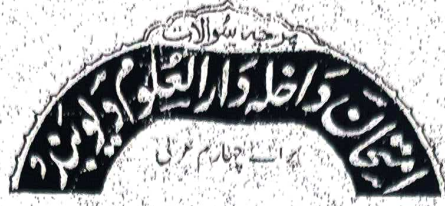 پرچہ سوالات
امتحان داخلہ دارالعلوم دیوبند
برائے چہارم عربی